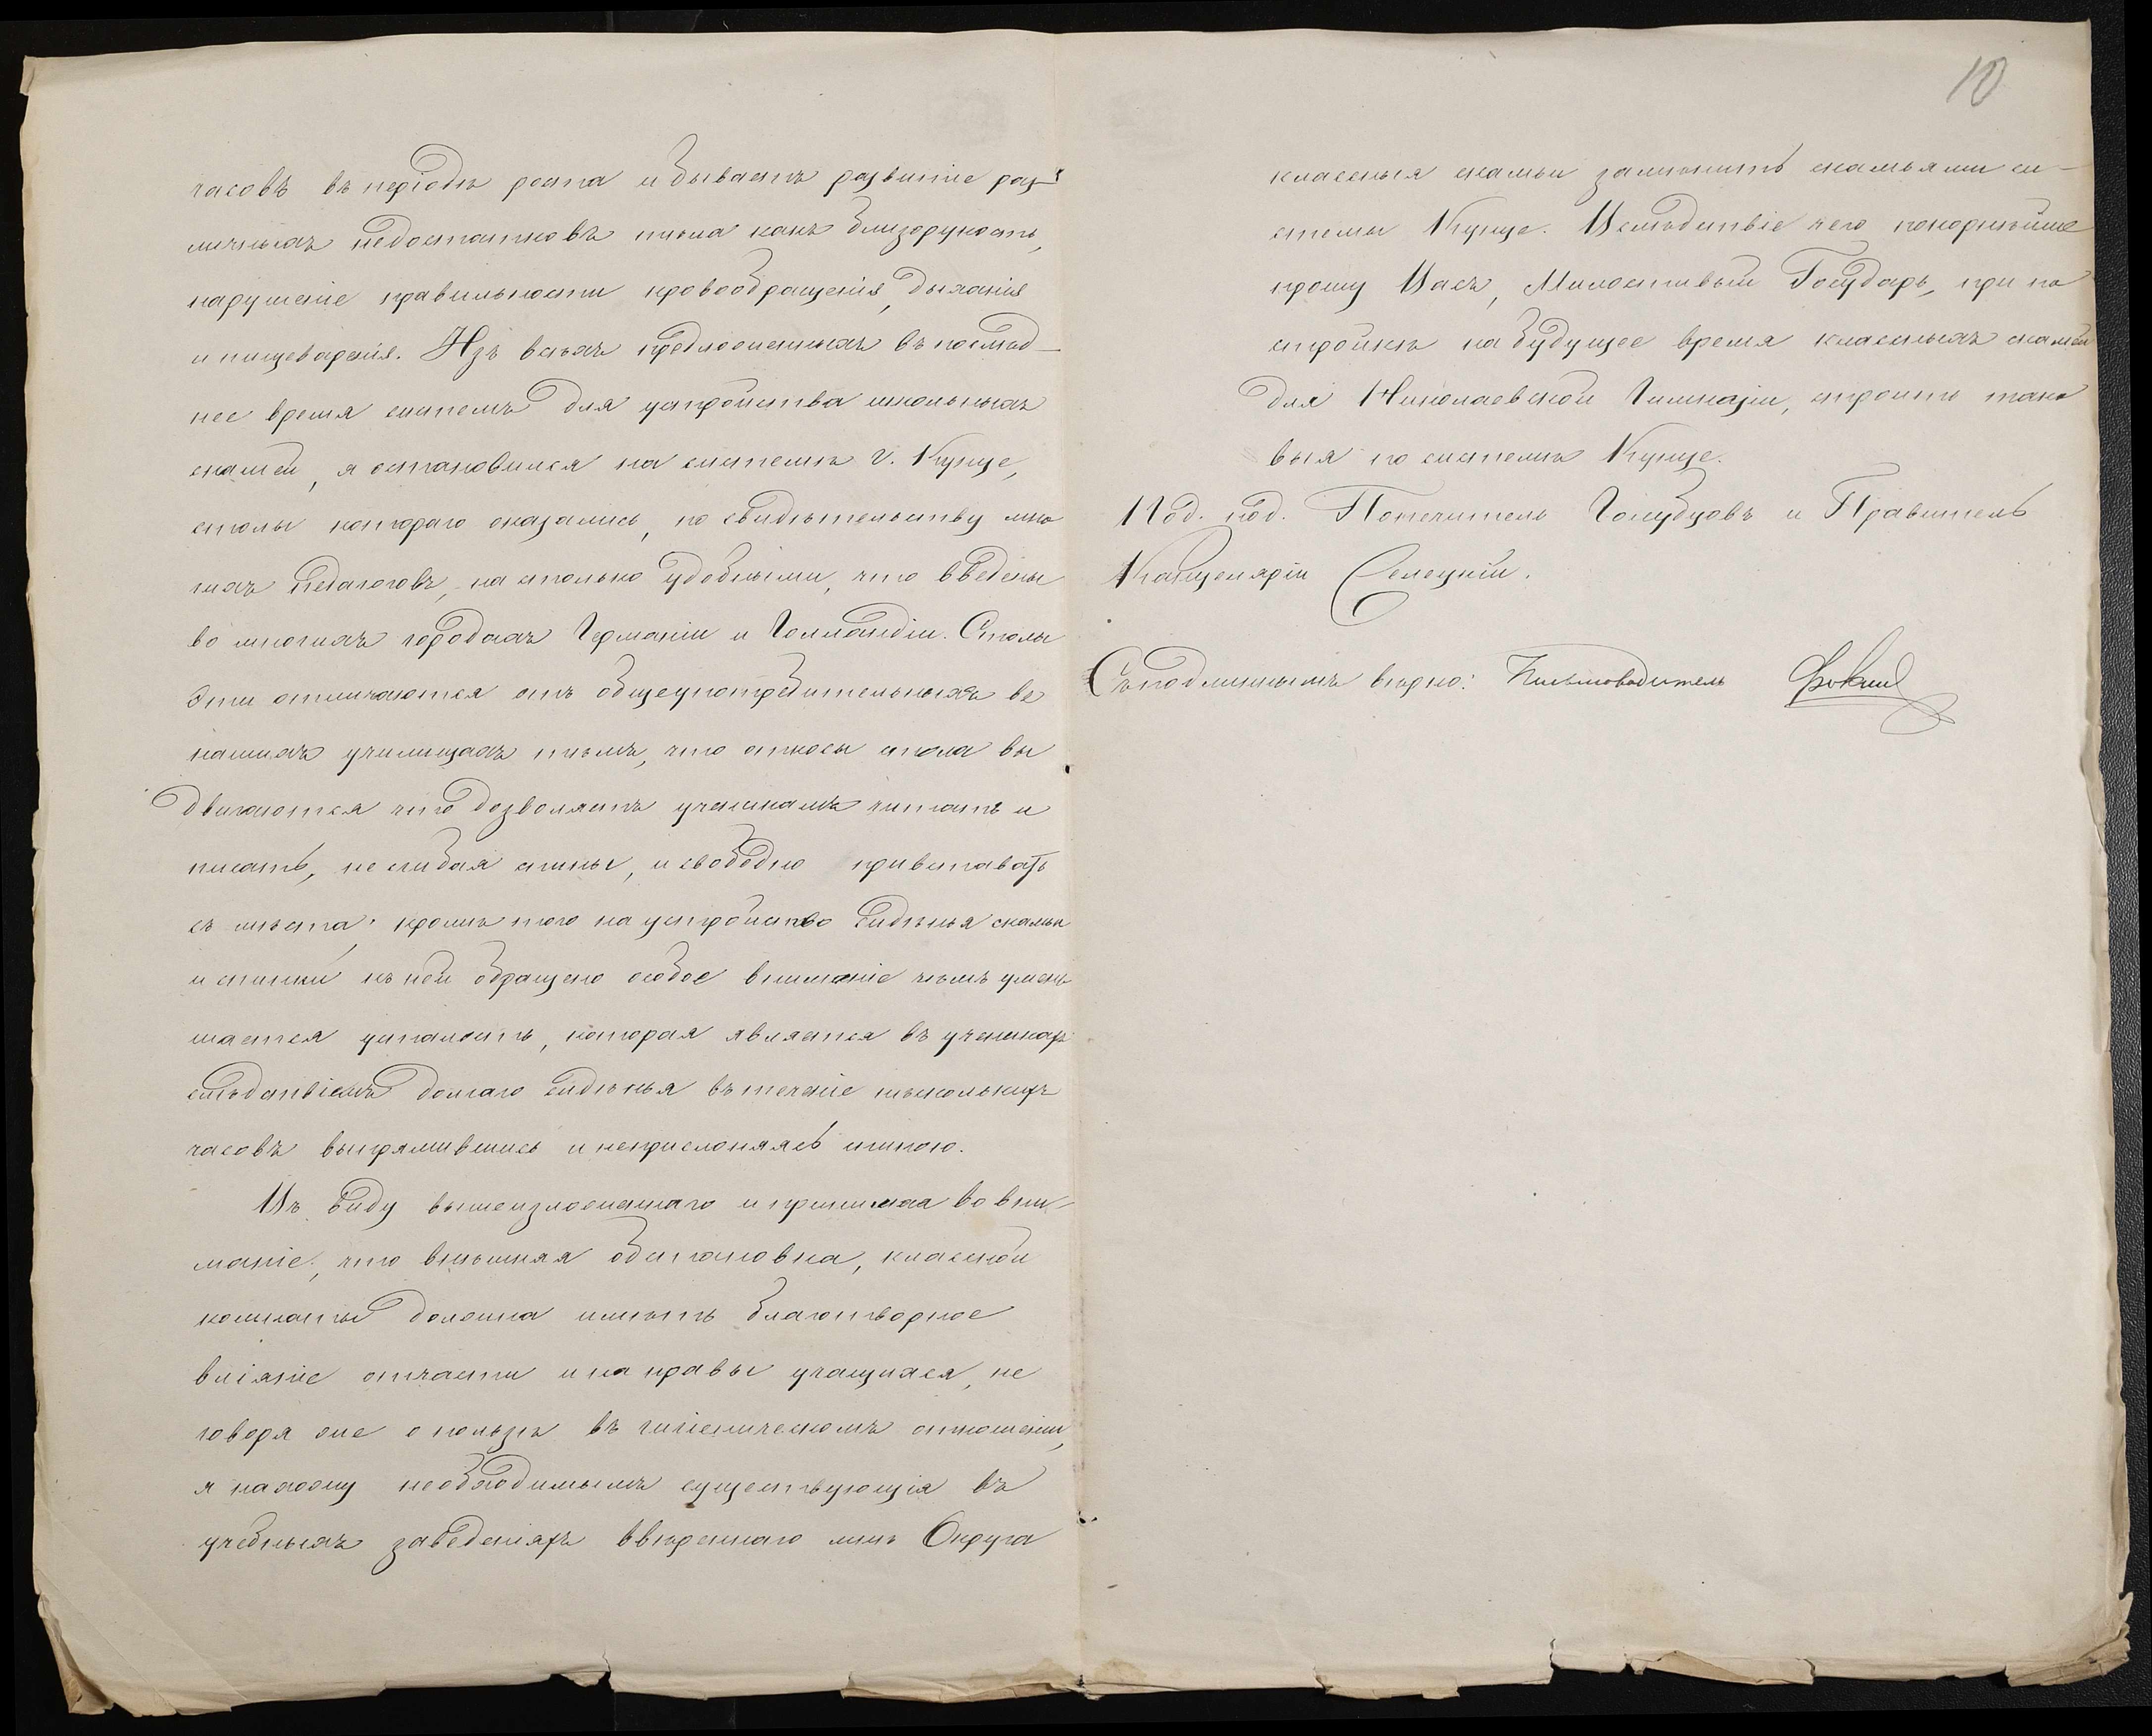 часовъ въ періодъ роста и бываетъ развитіе раз-
личныхъ недостатковъ тѣла какъ близорукость,
нарушеніе правильности кровообращенія, дыханія
и пищеваренія. Изъ всѣхъ предложенныхъ въ послѣд-
нее время системъ для устройства школьныхъ
скамей, я остановился на системѣ г. Кунце,
столы котораго оказались, по свидѣтельству мно
гихъ педагоговъ, на столько удобными, что введены
во многихъ городахъ Германіи и Голландіи. Столы
эти отличаются отъ общеупотребительныхъ въ
нашихъ училищахъ тѣмъ, что откосы стола вы
двигаются что дозволяетъ ученикамъ читать и
писать, не сгибая спины, и свободно привставать
съ мѣста; кромѣ того на устройство сидѣнья скамьи
и спинки къ ней обращено особое вниманіе чѣмъ умень
шается усталость, которая является въ ученикахъ
слѣдствіемъ долгаго сидѣнья въ теченіе нѣсколькихъ
часовъ выпрямившись и неприслоняясь спиною.
Въ виду вышеизложеннаго и принимая во вни-
маніе, что внѣшняя обстановка, классной
комнаты должна имѣть благотворное
вліяніе отчасти и на нравы учащихся, не
говоря уже о пользѣ въ гигіеническомъ отношеніи,
я нахожу необходимымъ существующія въ
учебныхъ заведеніяхъ ввѣреннаго мнѣ Округа
10
классныя скамьи замѣнить скамьями си-
стемы Кунце. Вслѣдствіе чего покорнѣйше
прошу Васъ, Милостивый Государь, при по
стройкѣ на будущее время классныхъ скамей
для Николаевской Гимназіи, строить тако
выя по системѣ Кунце.
Под. под. Попечитель Голубцовъ и Правитель
Канцеляріи Селецкій.
Съ подлиннымъ вѣрно: Письмоводитель